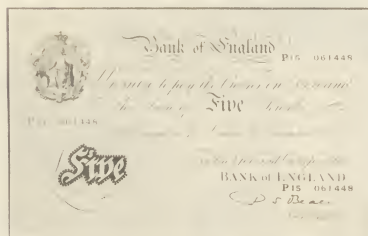 Bank of England
P15 061448
I Promise to pay the Bearer on Demand
the Sum of Five Pounds
P15 061448
Five
For the Gov.r and Comp.a of the
BANK of ENGLAND
P15 061448
P S Beale